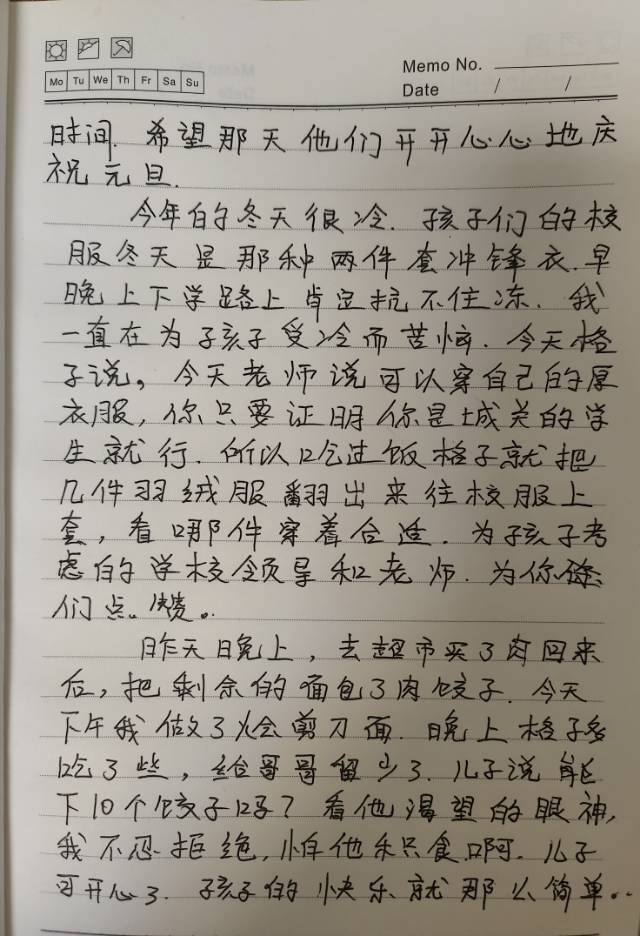 Memo No.
Mo Tu We Th Fr Sa Su
Date / /
时间. 希望那天他们开开心心地庆
祝元旦.
今年的冬天很冷. 孩子们的校
服冬天是那种两件套冲锋衣. 早
晚上下学路上肯定抗不住冻. 我
一直在为孩子受冷而苦恼. 今天格
子说。今天老师说可以穿自己的厚
衣服, 你只要证明你是城关的学
生就行. 所以吃过饭格子就把
几件羽绒服翻出来往校服上
套, 看哪件穿着合适. 为孩子考
虑的学校领导和老师. 为你
们点赞。
昨天晚上, 去超市买了肉回来
后, 把剩余的面包了肉饺子. 今天
下午我做了烩剪刀面. 晚上格子多
吃了些, 给哥哥留少了. 儿子说能
下10个饺子吗? 看他渴望的眼神,
我不忍拒绝, 怕他积食啊. 儿子
可开心了. 孩子的快乐就那么简单..